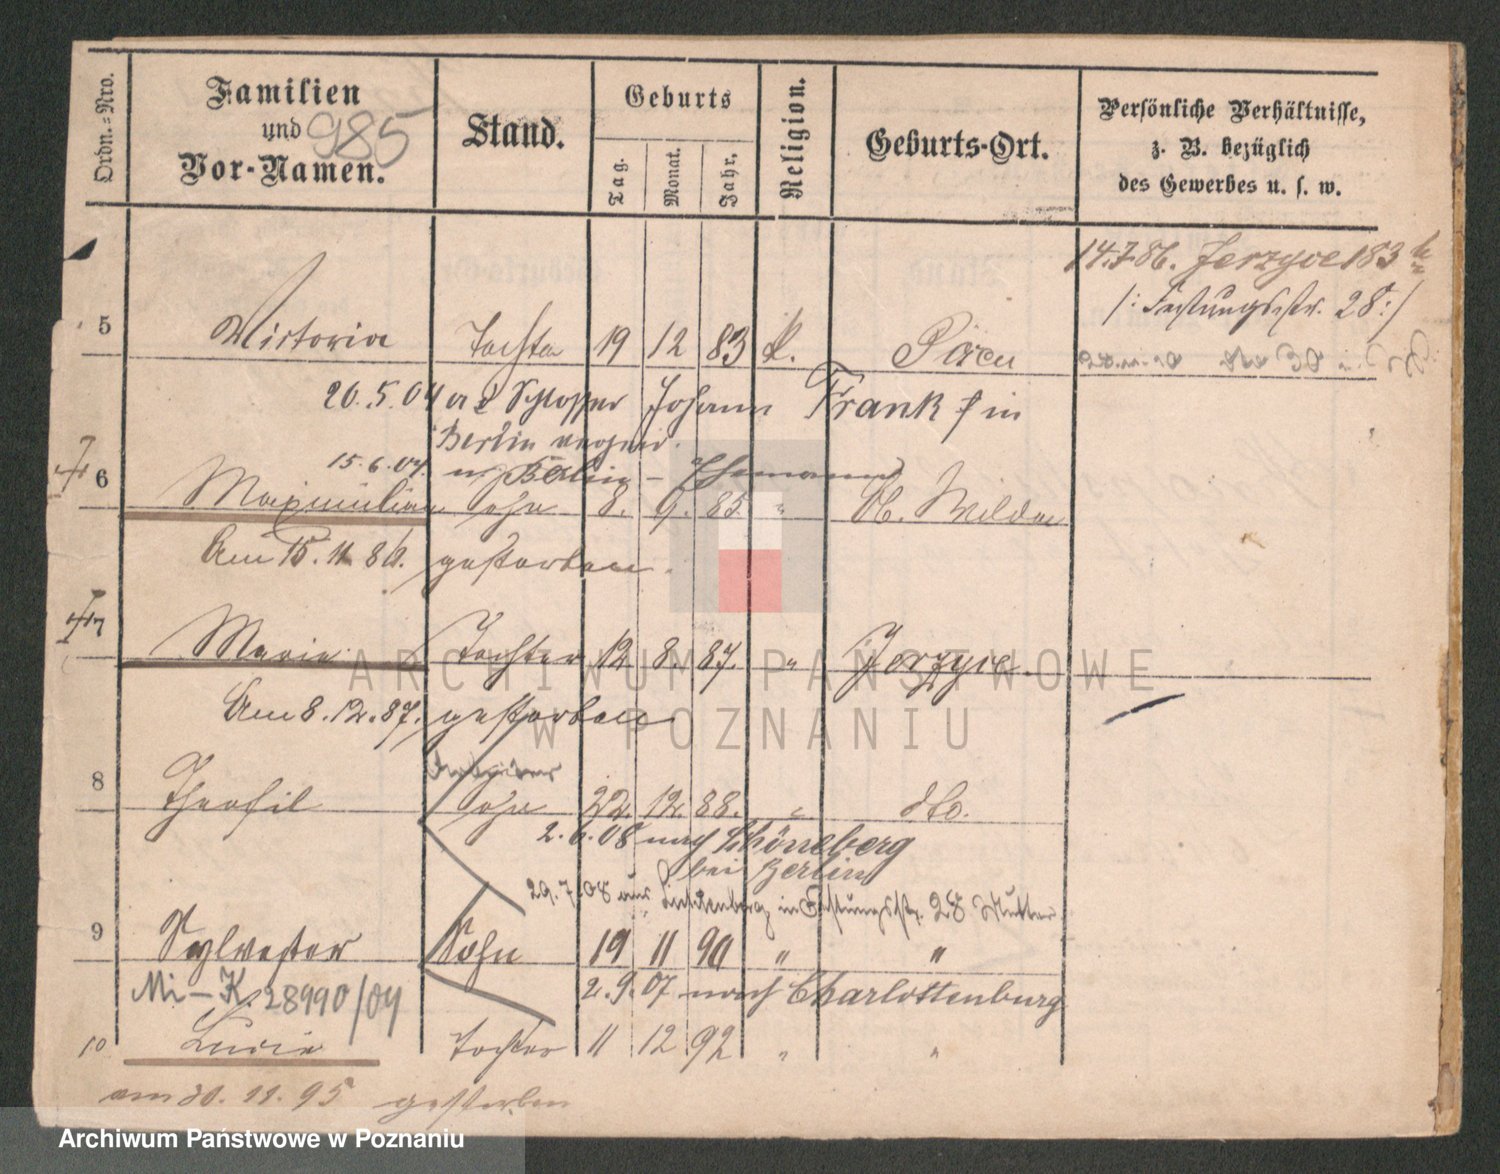 Ordn.=Nro.
Familien
und
Vor-Namen.
985
Stand.
Geburts
Tag.
Monat.
Jahr.
Religion.
Geburts-Ort.
Persönliche Verhältnisse,
z. B. bezüglich
des Gewerbes u. s. w.
14.7.86. Jerzyce 183
/: Festungsstr. 28 :/
5 Victoria Tochter 19 12 83 k.
20.5.04 Schlosser Johann Frank in
Berlin
15.6.04. Berlin – Ehemann
6 Maximilian Sohn 8. 9. 85. "
Am 15. 11. 86. gestorben.
7 Marie Tochter 12 8. 87. " Jerzyce.
Am 8. 12. 87. gestorben
8 Theofil Sohn 22. 12. 88. " dto.
2. 6. 08 nach Schöneberg
bei Berlin
29. 7. 08 aus Lichtenberg in Festungsstr. 28 Mutter
9 Sylvester Sohn 19 11 90 " "
Mi – K. 28990/04
2. 9. 07 nach Charlottenburg
10 Lucia Tochter 11 12 92 " "
am 30. 11. 95 gestorben
ARCHIWUM PAŃSTWOWE
W POZNANIU
Archiwum Państwowe w Poznaniu